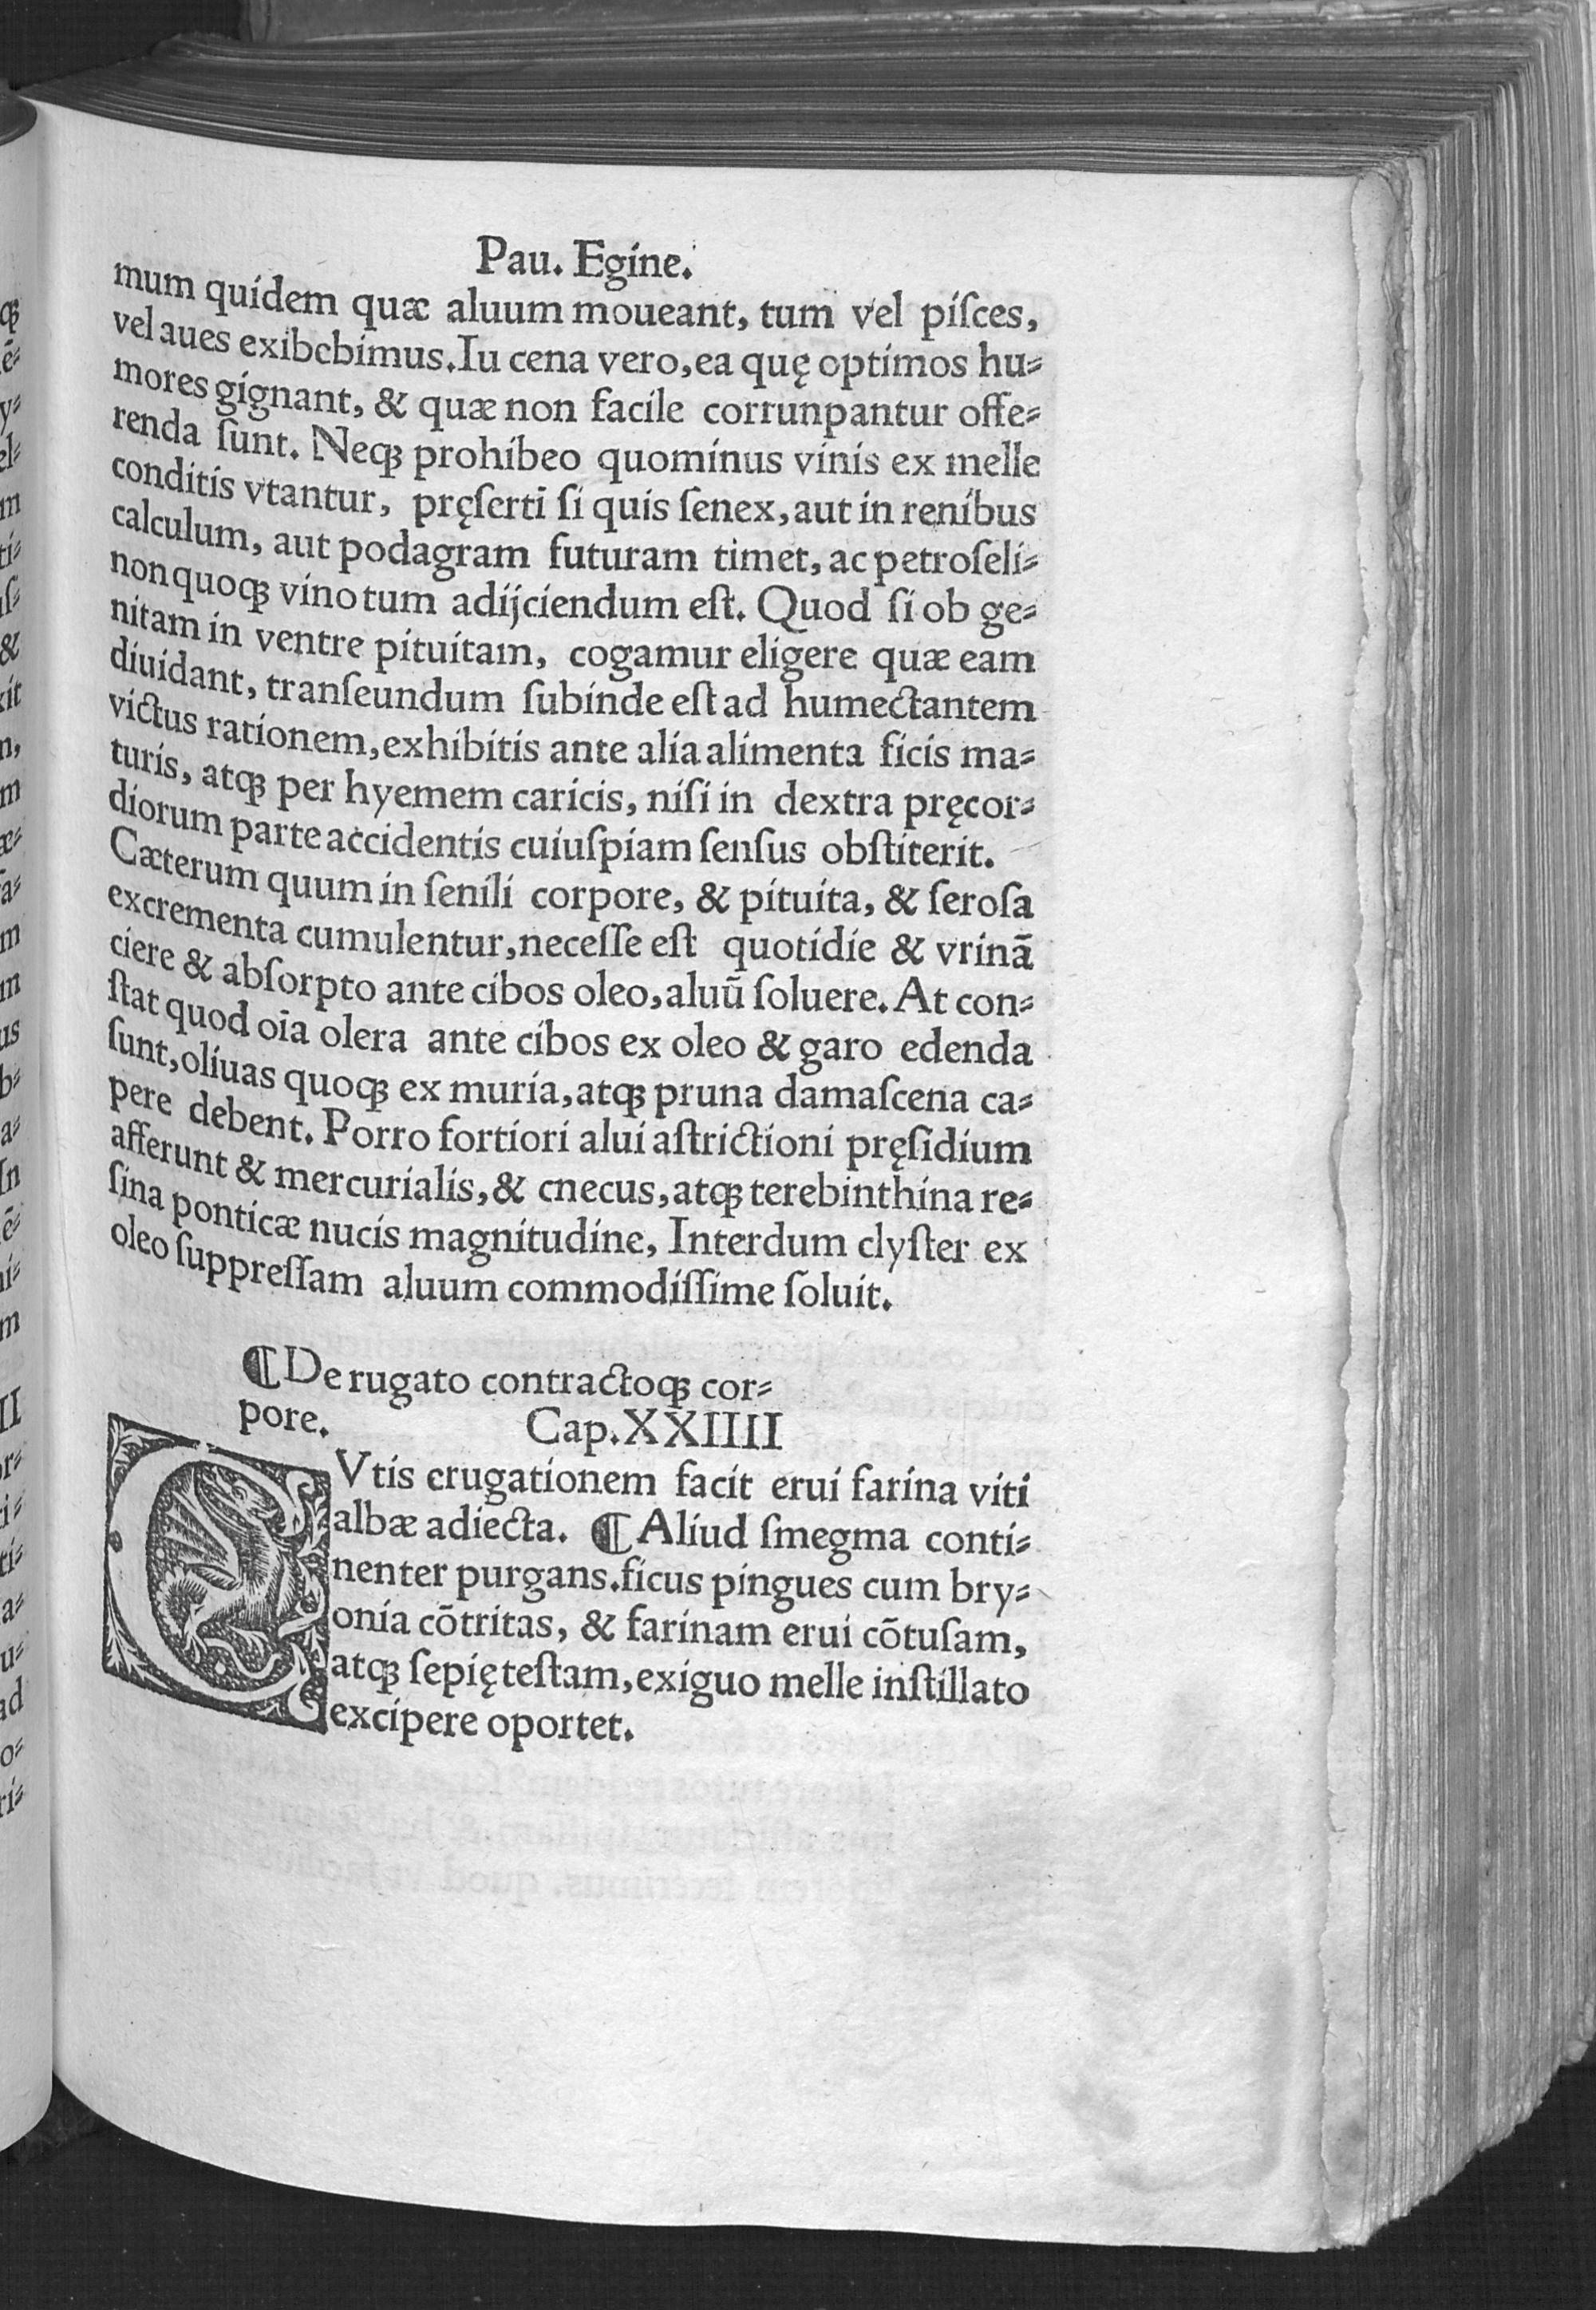 Pau. Egine.
mum quidem quæ aluum moueant, tum vel piſces,
vel aues exibebimus. Iu cena vero, ea quę optimos hu⸗
mores gignant, & quæ non facile corrunpantur offe⸗
renda ſunt. Neqꝫ prohibeo quominus vinis ex melle
conditis vtantur, pręſertī ſi quis ſenex, aut in renibus
calculum, aut podagram futuram timet, ac petroſeli⸗
non quoqꝫ vino tum adijciendum eſt. Quod ſi ob ge⸗
nitam in ventre pituitam, cogamur eligere quæ eam
diuidant, tranſeundum ſubinde eſt ad humectantem
victus rationem, exhibitis ante alia alimenta ficis ma⸗
turis, atqꝫ per hyemem caricis, niſi in dextra pręcor⸗
diorum parte accidentis cuiuſpiam ſenſus obſtiterit.
Cæterum quum in ſenili corpore, & pituita, & ſeroſa
excrementa cumulentur, neceſſe eſt quotidie & vrinā
ciere & abſorpto ante cibos oleo, aluū ſoluere. At con⸗
ſtat quod oīa olera ante cibos ex oleo & garo edenda
ſunt, oliuas quoqꝫ ex muria, atqꝫ pruna damaſcena ca⸗
pere debent. Porro fortiori alui aſtrictioni pręſidium
afferunt & mercurialis, & cnecus, atqꝫ terebinthina re⸗
ſina ponticæ nucis magnitudine, Interdum clyſter ex
oleo ſuppreſſam aluum commodiſſime ſoluit.
¶ De rugato contractoqꝫ cor⸗
pore. Cap. XXIIII
CVtis erugationem facit erui farina viti
albæ adiecta. ¶ Aliud ſmegma conti⸗
nenter purgans. ficus pingues cum bry⸗
onia cōtritas, & farinam erui cōtuſam,
atqꝫ ſepię teſtam, exiguo melle inſtillato
excipere oportet.